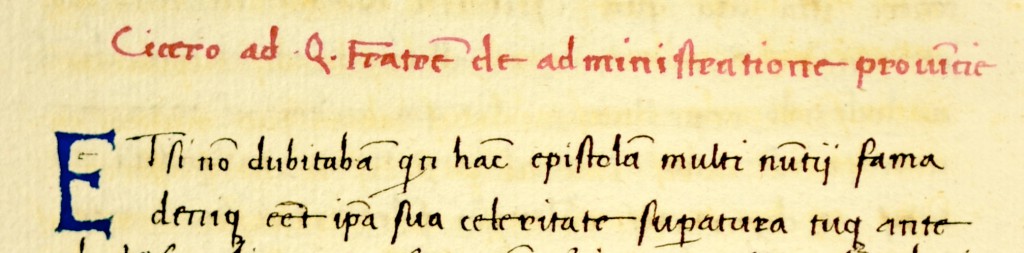 Cicero ad . Q. Fratrē de administratione prouīcie
ETsi nō dubitabā qn hāc epistolā multi nūtij fama
deniq eēt ipā sua celeritate supatura tuq ante